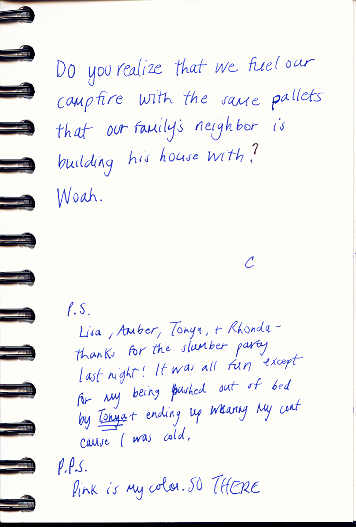 Do you realize that we fuel our
campfire with the same pallets
that our family's neighbor is
building his house with?
Woah.
C
P.S.
Lisa, Amber, Tonya, + Rhonda -
thanks for the slumber party
last night! It was all fun except
for my being pushed out of bed
by Tonya + ending up wearing my coat
cause I was cold.
P.P.S.
Pink is my color. SO THERE